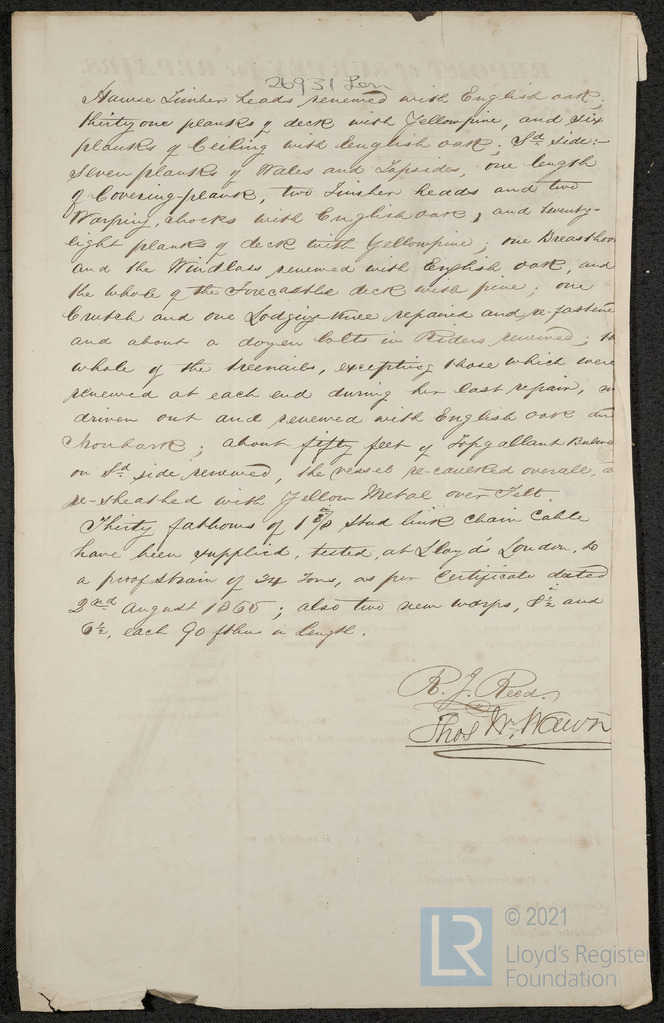 26931 Lon
Hawse Timber heads renewed with English oak;
thirty one planks of deck with Yellowpine, and six
planks of Ceiling with English oak; Sd. side:-
Seven planks of Wales and Topsides, one length
of Covering-plank, two Timber heads and two
Warping chocks with English oak; and twenty-
eight planks of deck with Yellowpine; one Breasthoo
and the Windlass renewed with English oak, and
the whole of the Forecastle deck with pine; one
Crutch and one Lodging-knee repaired and re-fastene
and about a dozen bolts in Riders renewed; th
whole of the treenails, excepting those which were
renewed at each end during her last repair,
driven out and renewed with English oak an
Ironbark; about fifty feet of Topgallant Bulwa
on Sd. side renewed, the vessel re-caulked overall, a
re-sheathed with Yellow Metal over Felt.
Thirty fathoms of 1 3/8 in stud link chain Cable
have been supplied, tested, at Lloyd's London, to
a proof strain of 34 Tons, as per Certificate dated
2nd August 1865; also two new warps, 8½ in and
6½, each 90 fthms in length.
R. J. Reed.
Thos W. Wawn
LR
© 2021
Lloyd's Register
Foundation